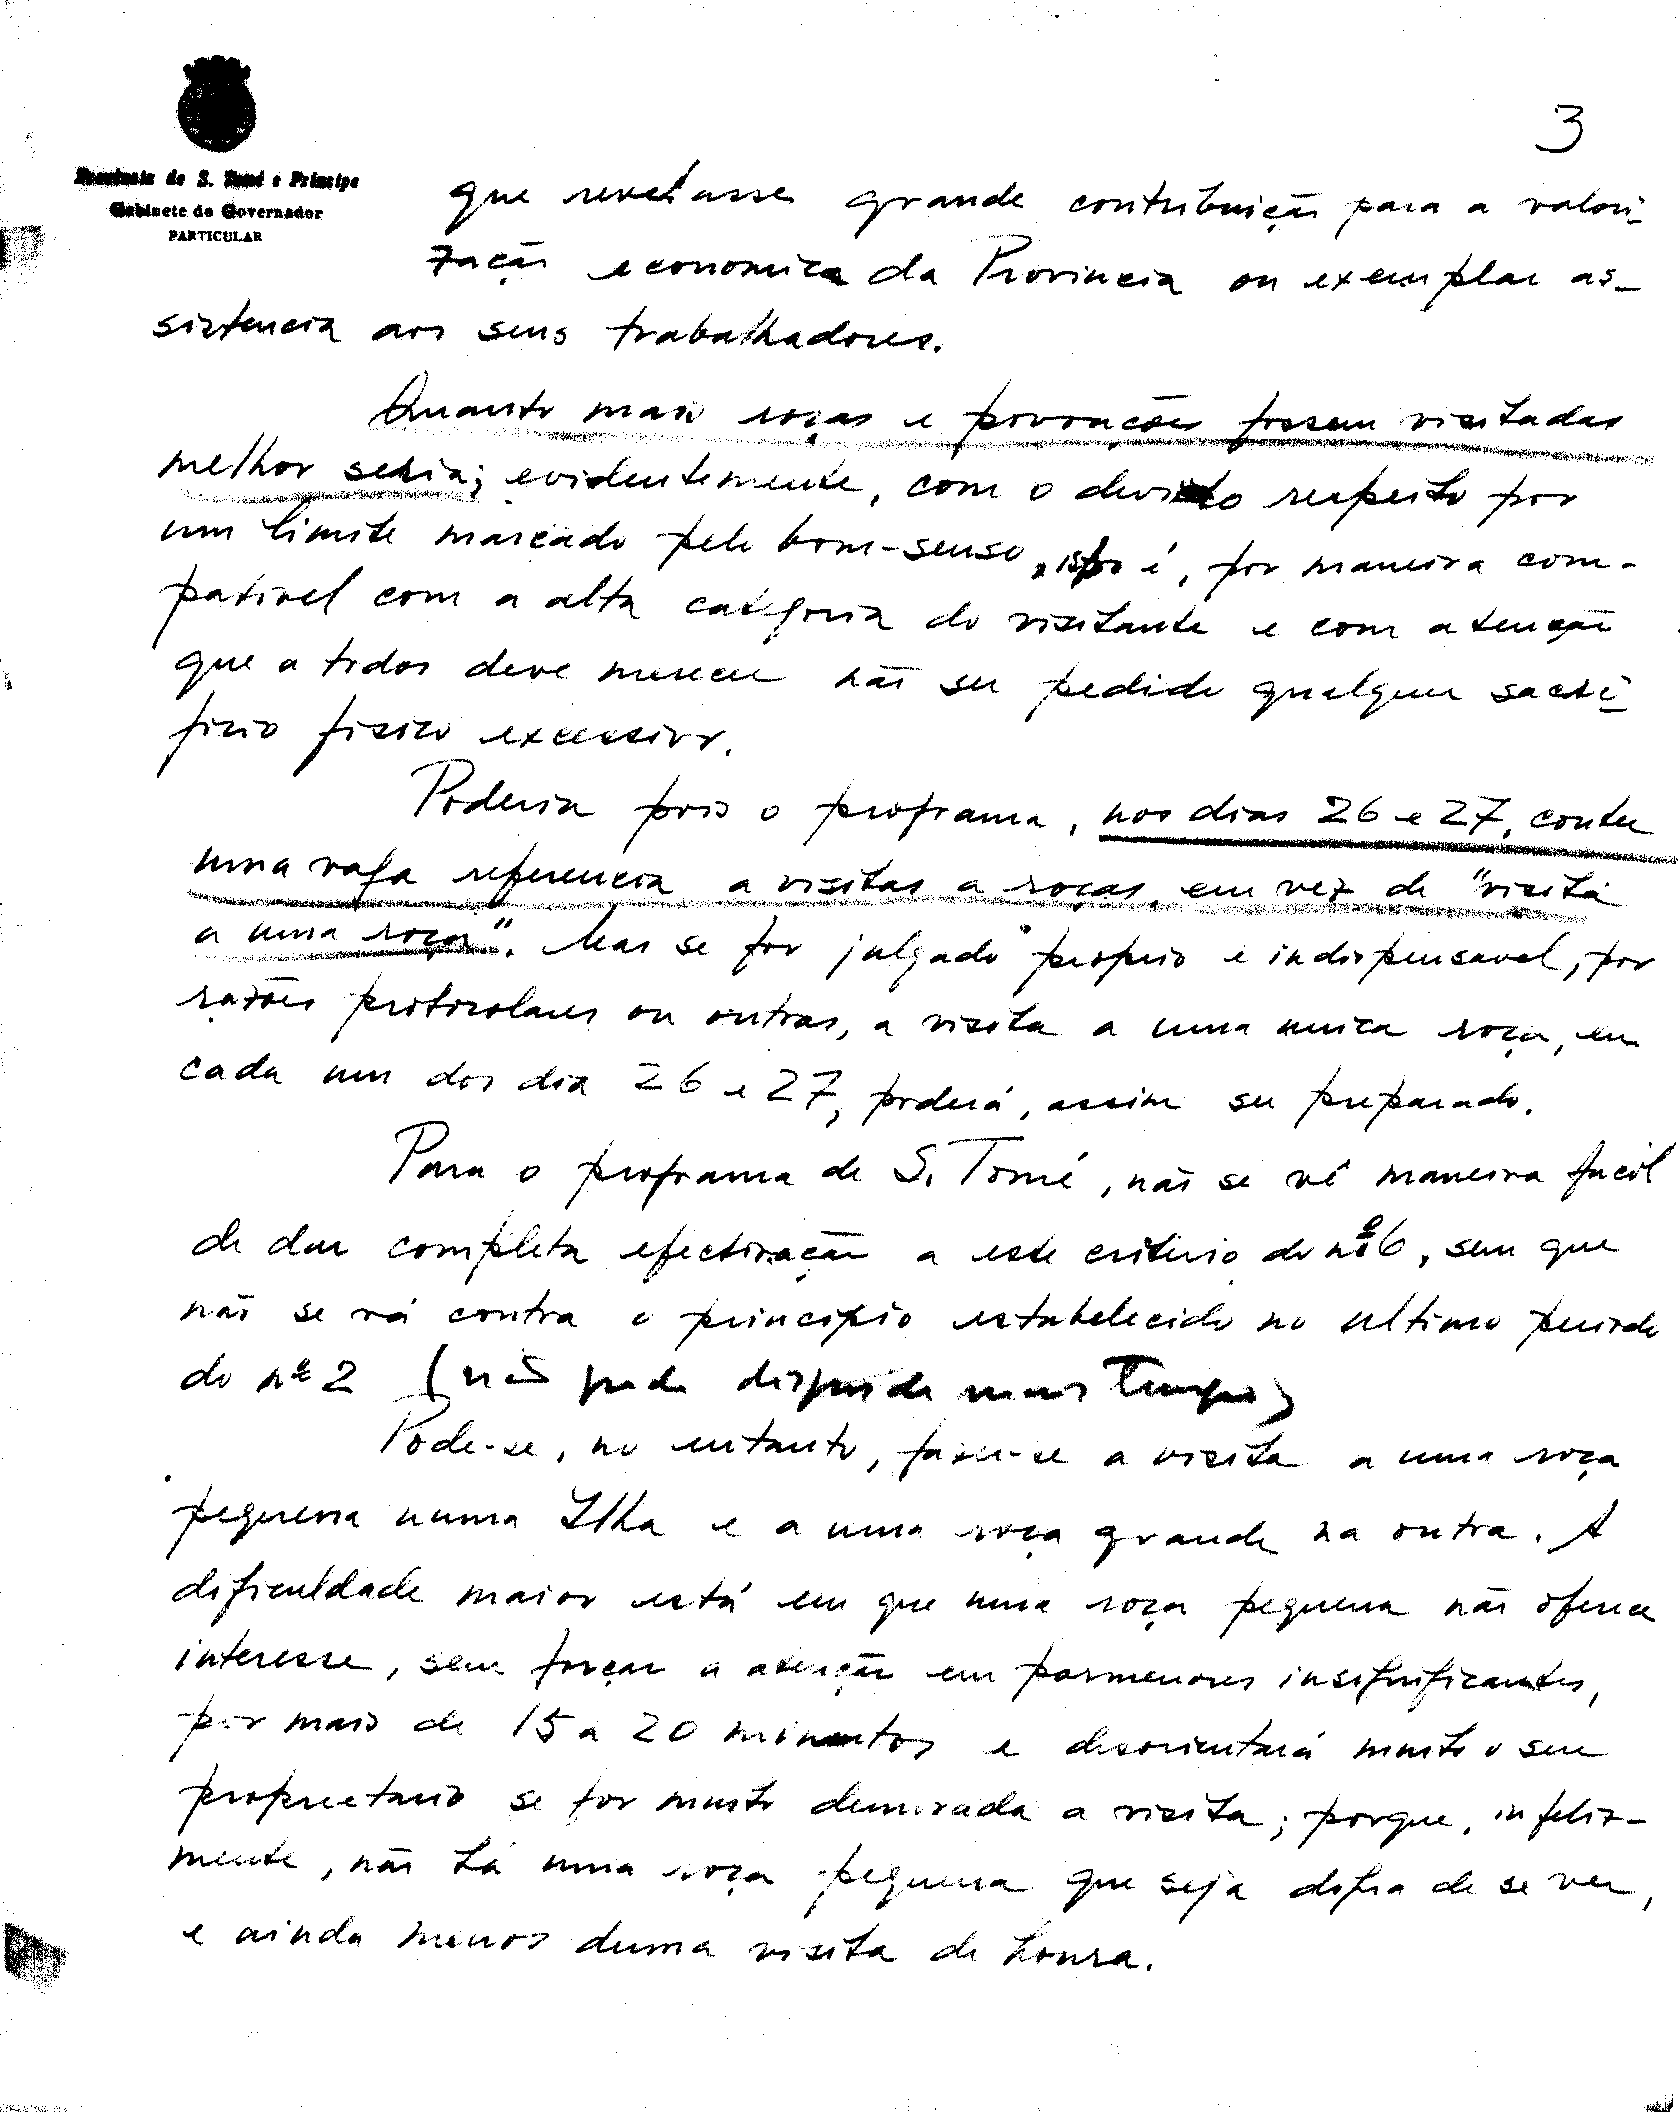 3
Provincia de S. Tomé e Príncipe
Gabinete do Governador
PARTICULAR
que revelasse grande contribuição para a valori-
zação economica da Provincia ou exemplar as-
sistencia aos seus trabalhadores.
Quanto mais roças e povoações fossem visitadas
melhor seria; evidentemente, com o devido respeito por
um limite marcado pelo bom-senso, isto é, por maneira com-
pativel com a alta categoria do visitante e com atenção
que a todos deve merecer não ser pedido qualquer sacri-
ficio fisico excessivo.
Poderia pois o programa, nos dias 26 e 27, conter
uma vaga referencia a visitas a roças, em vez de "visita
a uma roça". Mas se for julgado proprio e indispensavel, por
razões protocolares ou outras, a visita a uma unica roça, em
cada um dos dia 26 e 27, poderá, assim ser preparado.
Para o programa de S. Tomé, não se vê maneira facil
de dar completa efectivação a este criterio do nº 6, sem que
não se vá contra o principio estabelecido no ultimo periodo
do nº 2 (não pode dispor de mais tempo)
Pode-se, no entanto, fazer-se a visita a uma roça
pequena numa Ilha e a uma roça grande na outra. A
dificuldade maior está em que uma roça pequena não oferece
interesse, sem forçar a atenção em pormenores insignificantes,
por mais de 15 a 20 minutos e desorientará muito o seu
proprietario se for muito demorada a visita; porque, infeliz-
mente, não há uma roça pequena que seja digna de se ver,
e ainda menos duma visita de honra.